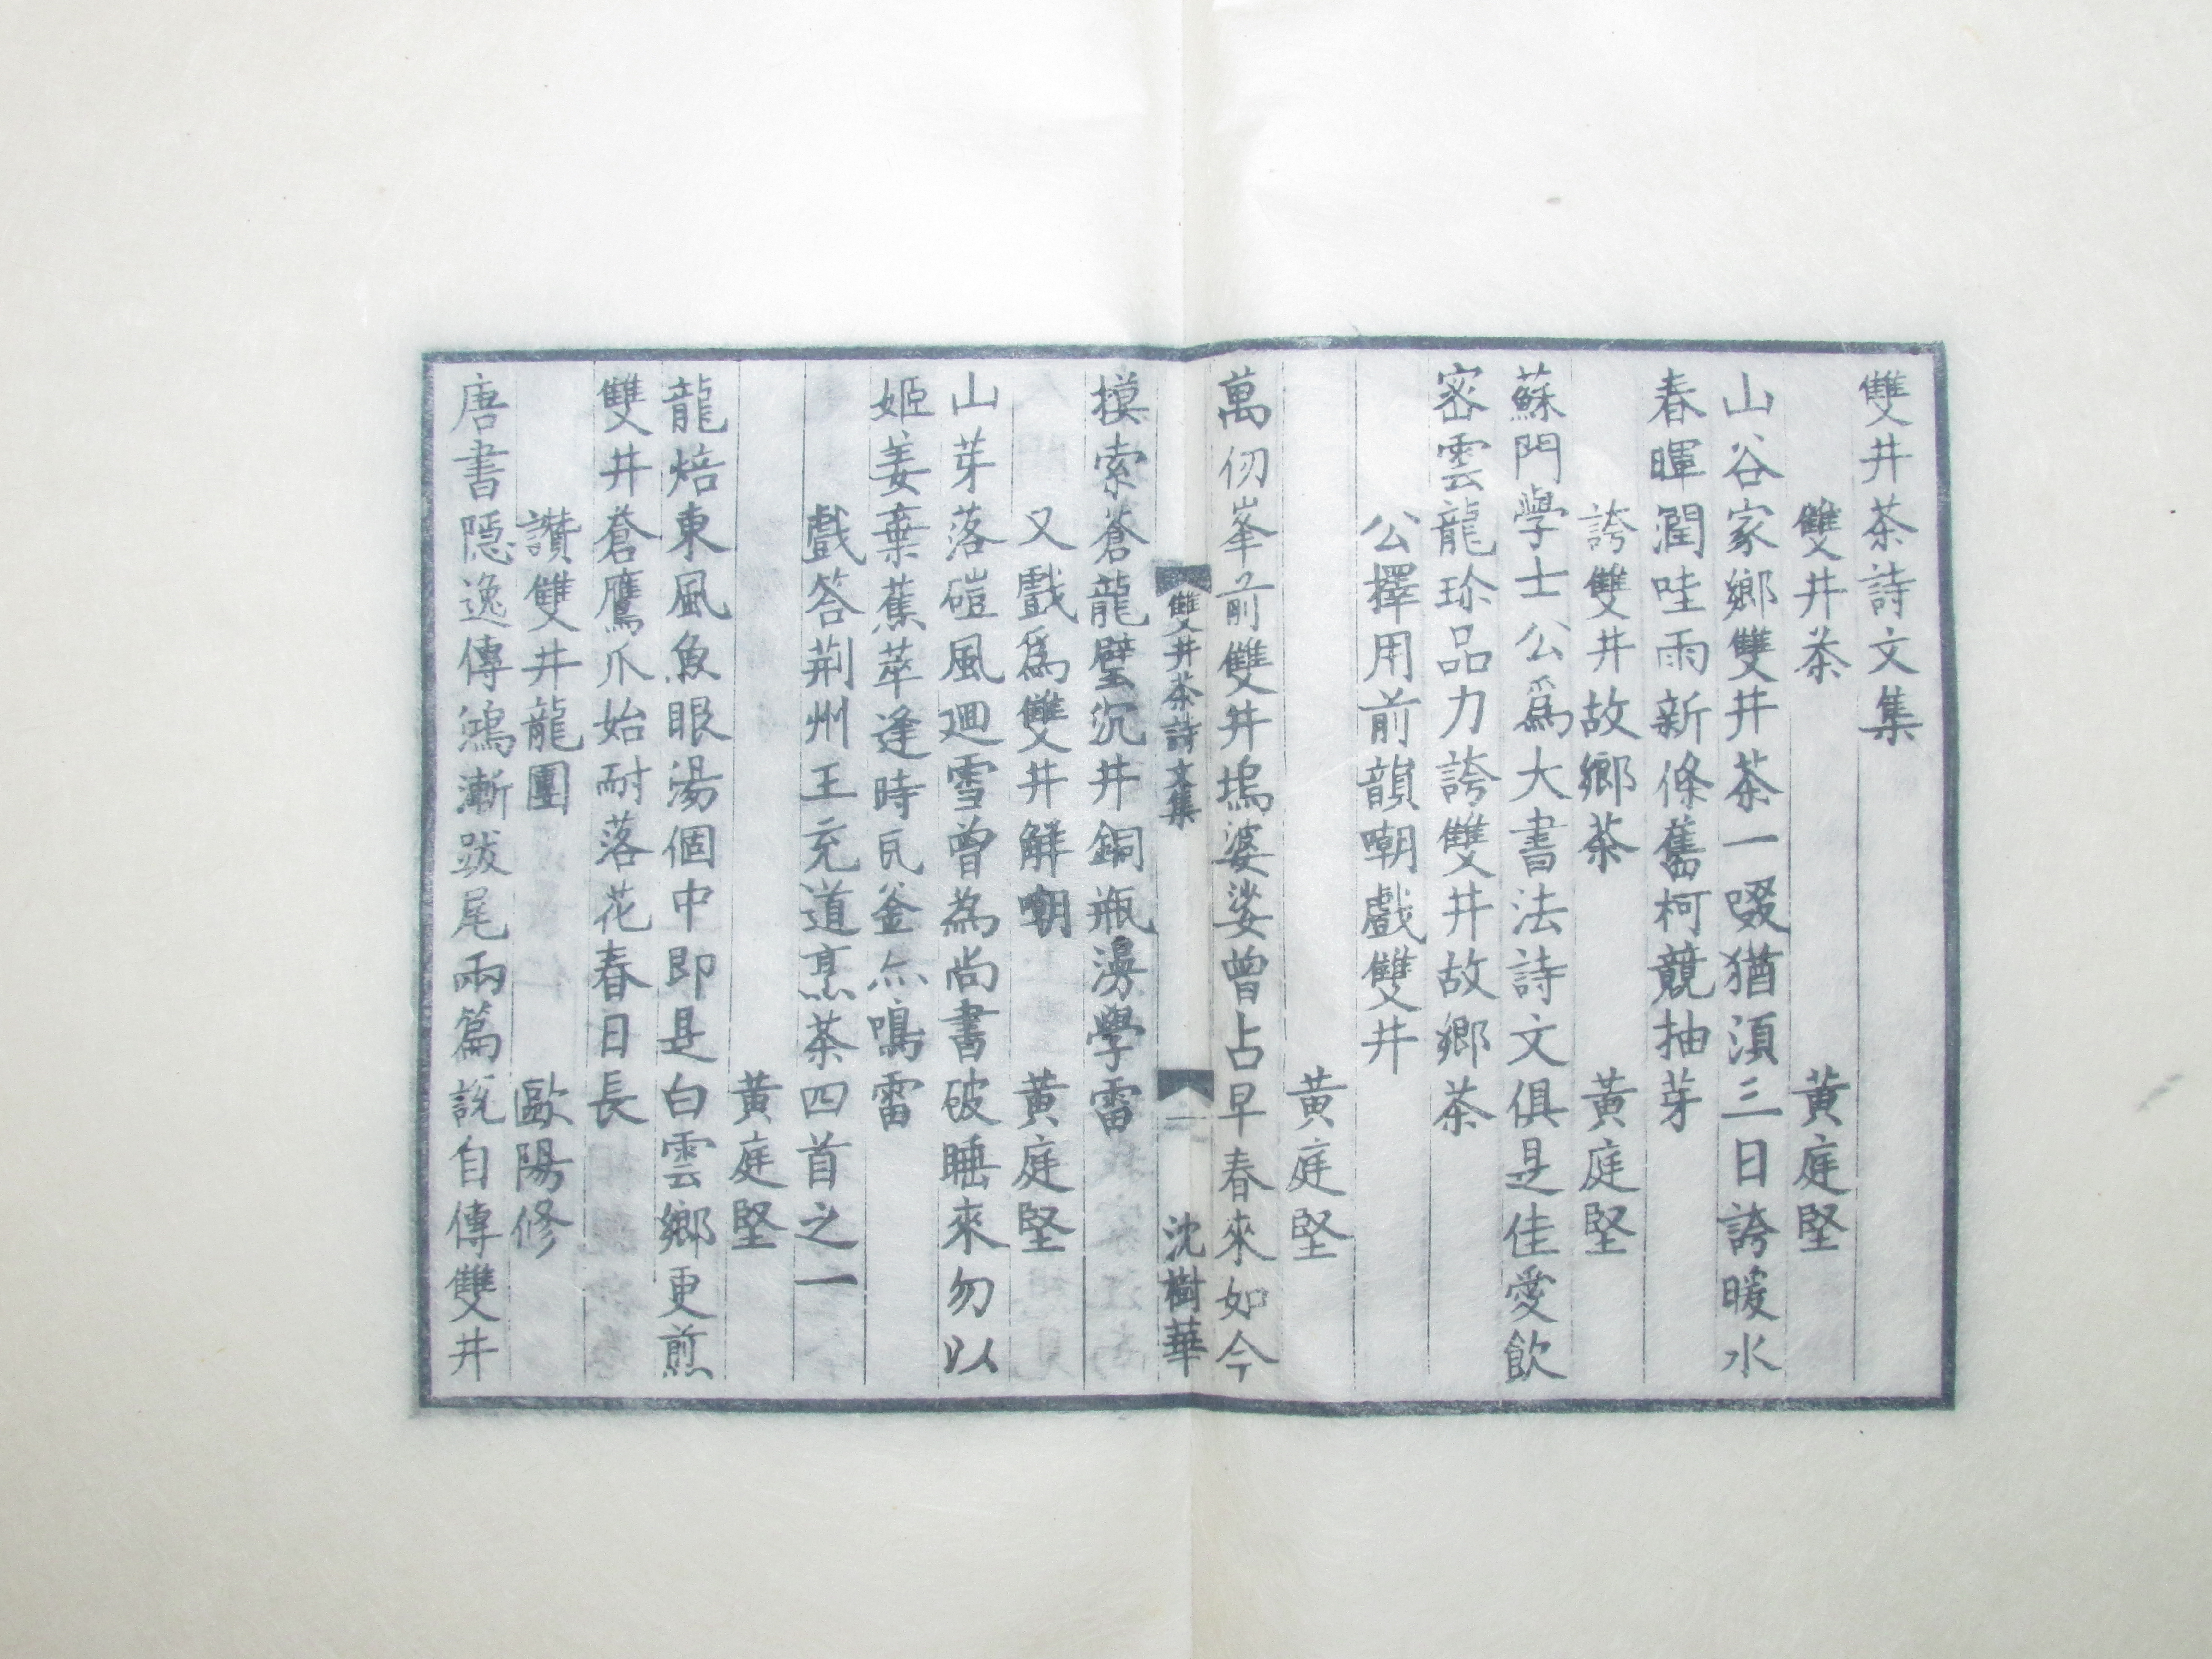 雙井茶詩文集
雙井茶 黃庭堅
山谷家鄉雙井茶一啜猶須三日誇暖水
春暉潤哇雨新條舊柯競抽芽
誇雙井故鄉茶 黃庭堅
蘇門學士公爲大書法詩文俱是佳愛飲
密雲龍珍品力誇雙井故鄉茶
公擇用前韻嘲戲雙井
黃庭堅
萬仞峯前雙井塢婆娑曾占早春來如今
雙井茶詩文集 一 沈樹華
摸索蒼龍壁沉井銅瓶漫學雷
又戲爲雙井解嘲 黃庭堅
山芽落磑風迴雪曾為尚書破睡來勿以
姬姜棄蕉萃逢時瓦釜亦鳴雷
戲答荆州王充道烹茶四首之一
黃庭堅
龍焙東風魚眼湯個中即是白雲鄉更煎
雙井蒼鷹爪始耐落花春日長
讚雙井龍團 歐陽修
唐書隱逸傳鴻漸跋尾兩篇說自傳雙井